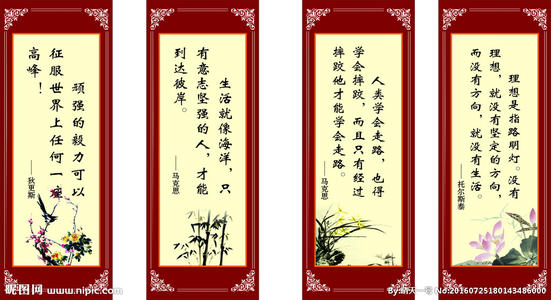 顽强的毅力可以
征服世界上任何一座
高峰！
——狄更斯
生活就像海洋，只
有意志坚强的人，才能
到达彼岸。
——马克思
人类学会走路，也得
学会摔跤，而且只有经过
摔跤他才能学会走路。
——马克思
理想是指路明灯。没有
理想，就没有坚定的方向，
而没有方向，就没有生活。
——托尔斯泰
昵图网 www.nipic.com
By: No:20160725180143486000